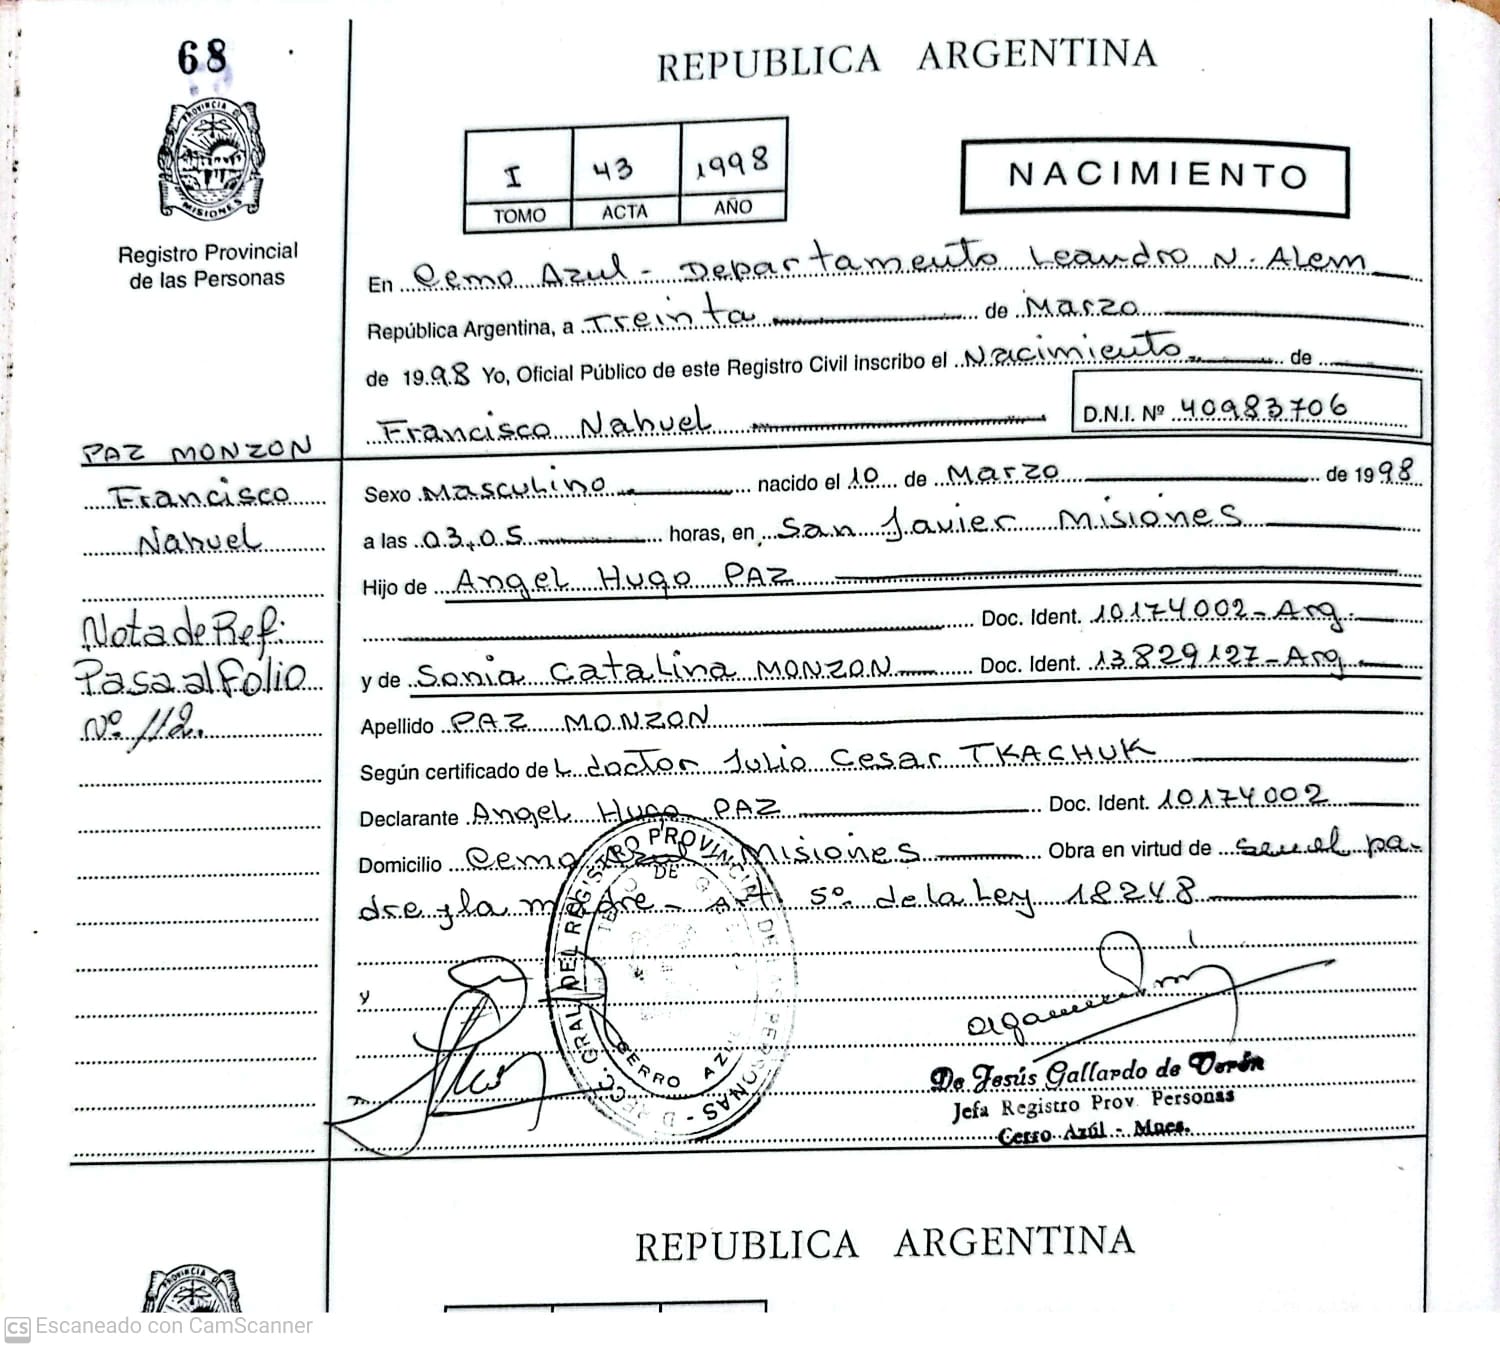 68
REPUBLICA ARGENTINA
PROVINCIA DE
MISIONES
Registro Provincial
de las Personas
I 43 1998
TOMO ACTA AÑO
NACIMIENTO
En Cerro Azul - Departamento Leandro N. Alem
República Argentina, a Treinta de Marzo
de 1998 Yo, Oficial Público de este Registro Civil inscribo el Nacimiento de
Francisco Nahuel
D.N.I. Nº 40983706
PAZ MONZON
Francisco
Nahuel
Nota de Ref:
Pasa al Folio
Nº 112.
Sexo Masculino nacido el 10 de Marzo de 1998
a las 03,05 horas, en San Javier Misiones
Hijo de Angel Hugo PAZ
Doc. Ident. 10174002-Arg.
y de Sonia Catalina MONZON Doc. Ident. 13829127-Arg.
Apellido PAZ MONZON
Según certificado de L doctor Julio Cesar TKACHUK
Declarante Angel Hugo PAZ Doc. Ident. 10174002
Domicilio Cerro Azul Misiones Obra en virtud de ser el pa-
dre y la madre - Art 5º de la Ley 18248
y
DIRECC. GRAL. DEL REGISTRO PROVINCIAL DE LAS PERSONAS
CERRO AZUL
De Jesús Gallardo de Verón
Jefa Registro Prov. Personas
Cerro Azúl - Mnes.
REPUBLICA ARGENTINA
PROVINCIA
CS Escaneado con CamScanner